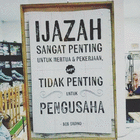 IJAZAH
SANGAT PENTING
UNTUK MERTUA & PEKERJAAN,
TIDAK PENTING
UNTUK
PENGUSAHA
BOB SADINO